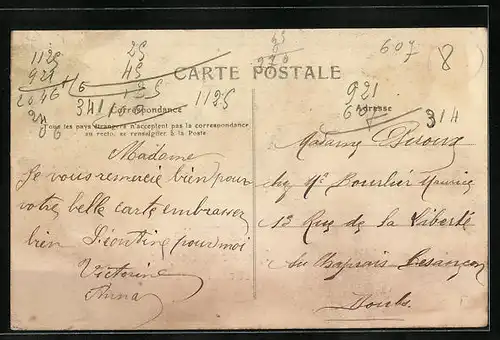 1125
921
2046
25
45
25
6
920
607
8
CARTE POSTALE
341
Correspondance
1125
921
607
314
Adresse
Tous les pays étrangers n'acceptent pas la correspondance
au recto, se renseigner à la Poste
Madame
Je vous remercie bien pour
votre belle carte embrasser
bien Léontine pour moi
Victorine
Anna
Madame
chez Mr Bourlier Maurice
13 Rue de la Liberté
Chaprais Besançon
Doubs